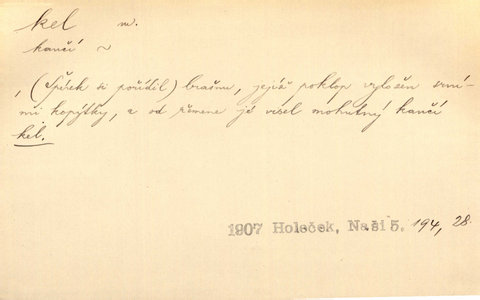 kel m.
kančí ~
, (Špírek si pořídil) brašnu, jejíž poklop vyložen srní-
mi kopýtky, a od řemene jé visel mohutný kančí
kel.
1907 Holeček, Naši 5. 194, 28.